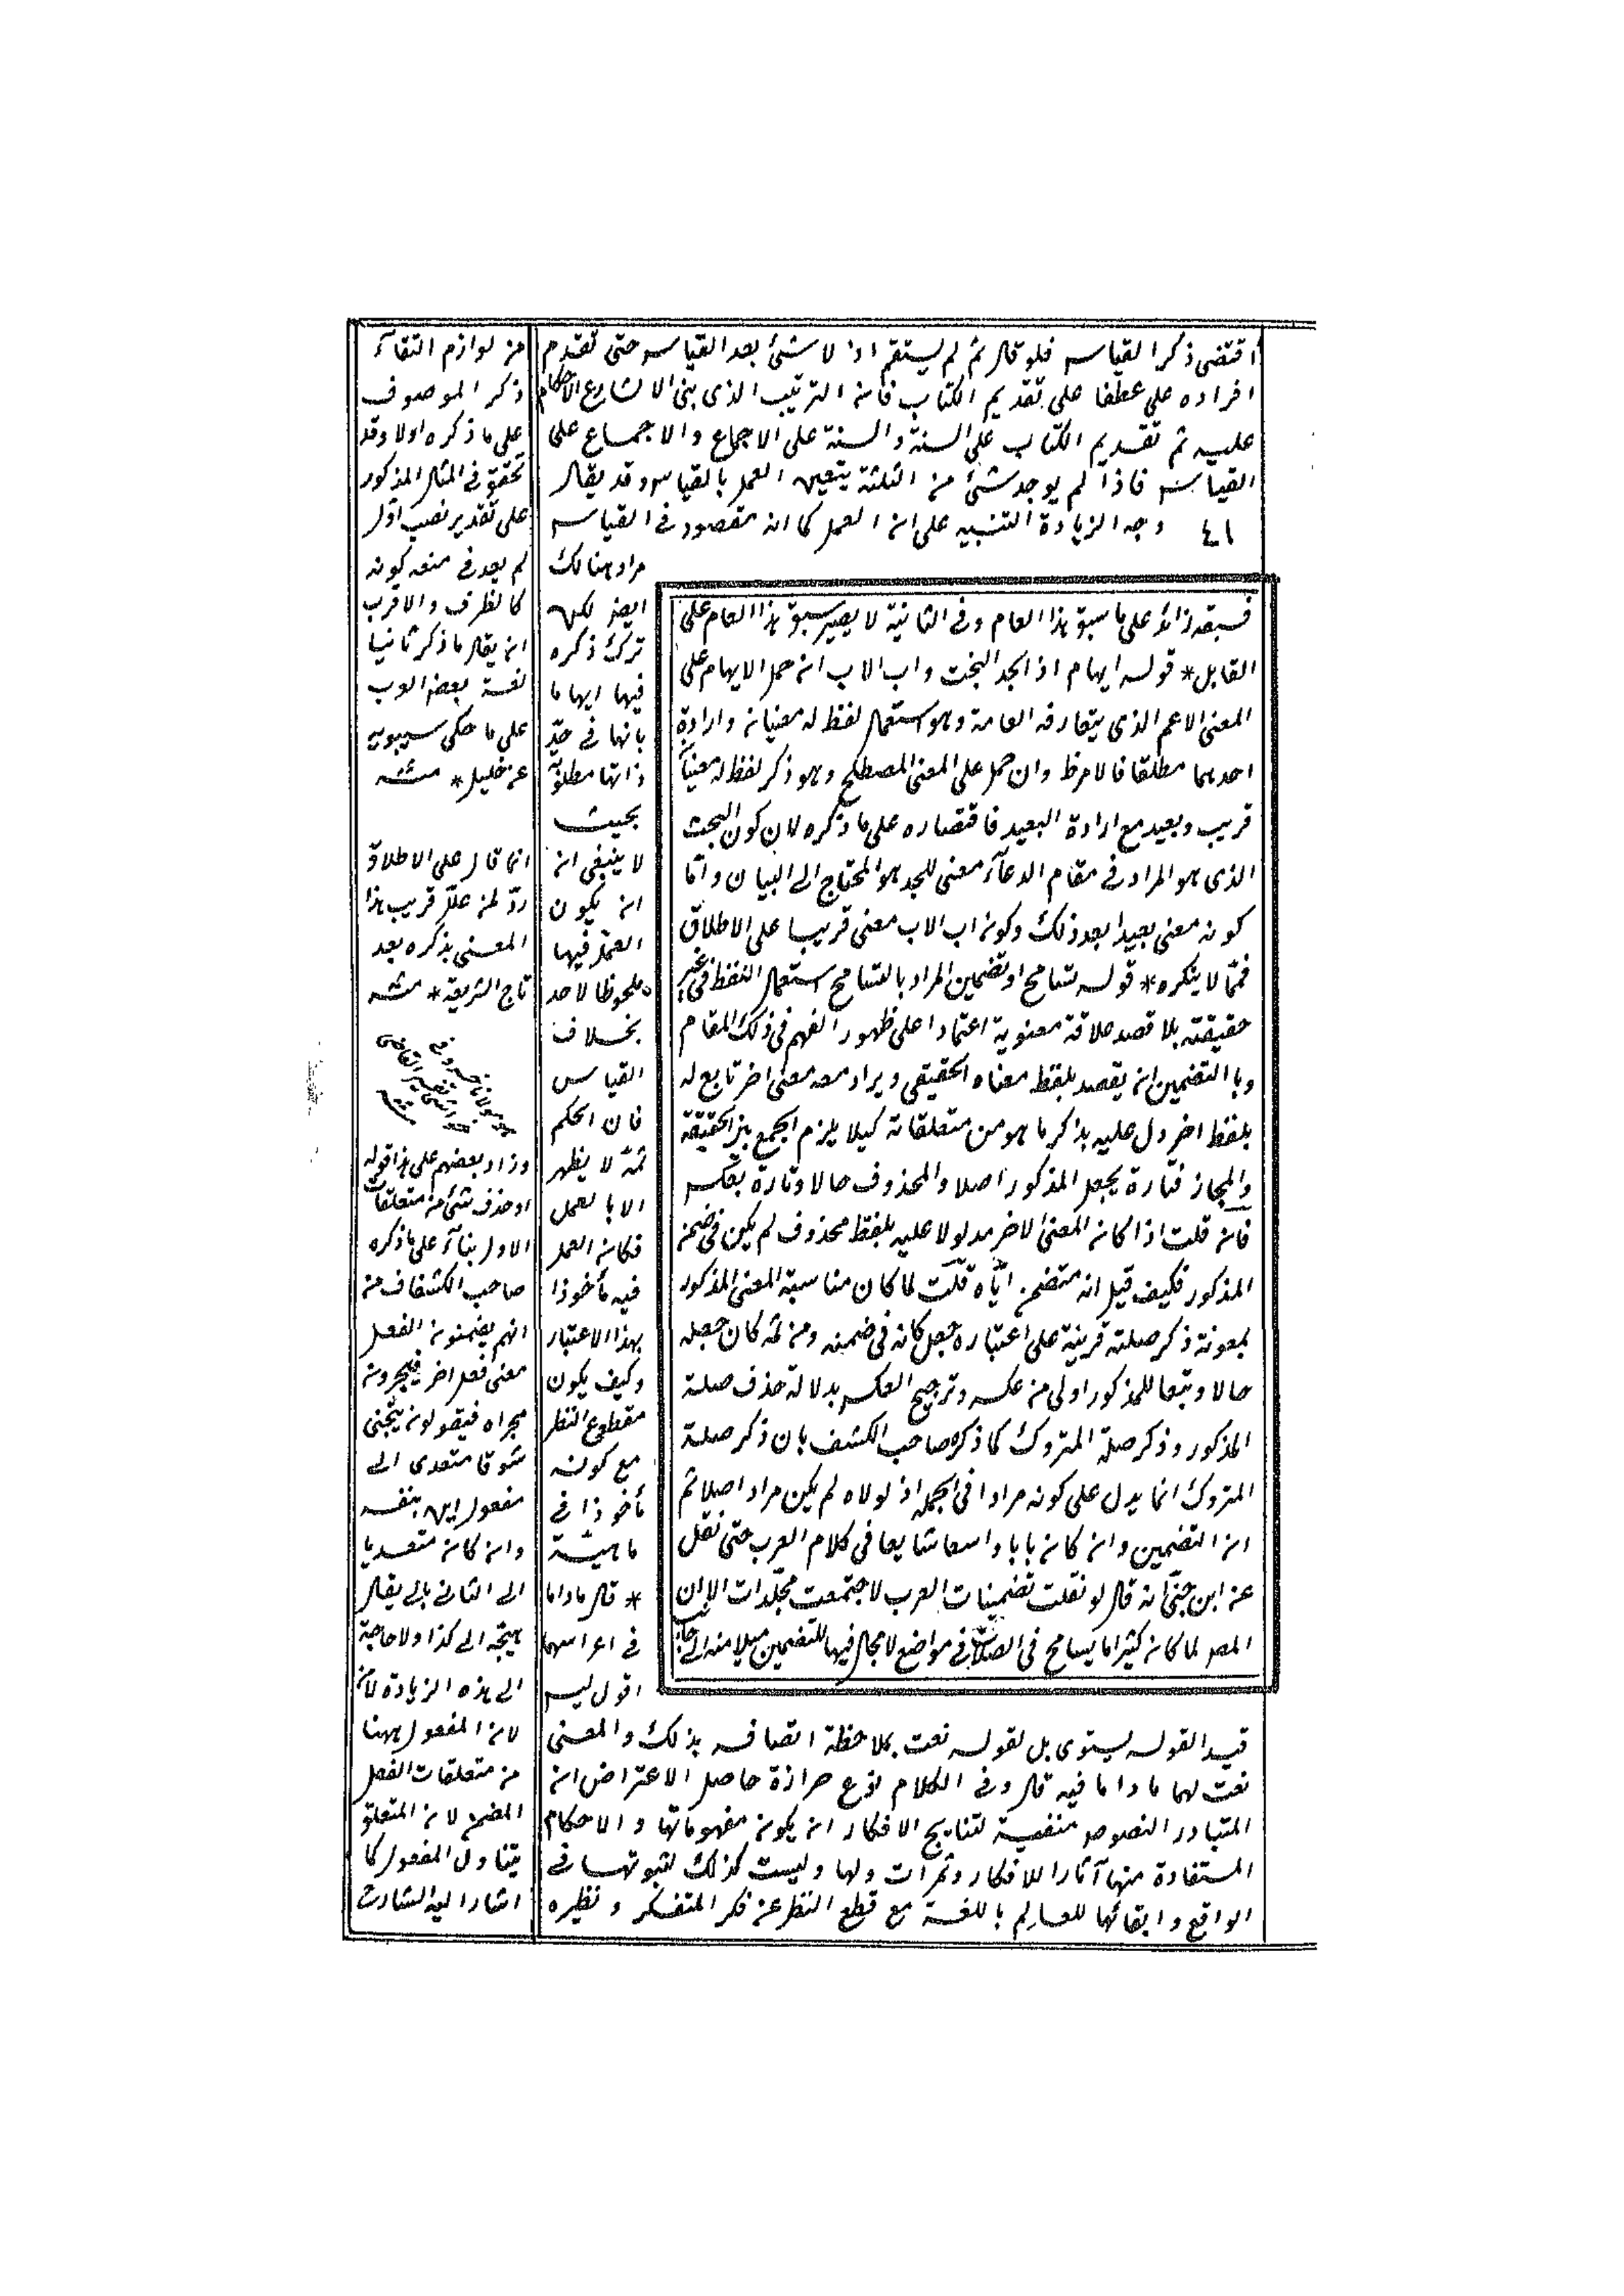 اقتضى ذكر القياس فلو قال ثم لم يستقم اذ لا شئ بعد القياس حتى تقدم
افراده على عطفا على تقديم الكتاب فان الترتيب الذى بنى الا لشارع الاحكام
عليه ثم تقديم الكتاب على السنة والسنة على الاجماع والاجماع على
القياس فاذا لم يوجد شئ من الثلثة يتعين العمل بالقياس وقد يقال
٤١ وجه الزيادة التنبيه على ان العمل كما انه مقصود فى القياس
مراد هنالك
ايضا لكن
ترك ذكره
فيها ايها ما
بانها فى حدّ
ذاتها مطلقة
بحيث
لا ينبغى ان
ان يكون
العمل فيها
ملحوظا لاحد
بخلاف
القياس
فان الحكم
ثمة لا يظهر
الا بالعمل
فكان العمل
فيه مأخوذا
بهذا الاعتبار
وكيف يكون
مقطوع النظر
مع كونه
مأخوذا فى
ماهيته
* قال ماداما
فى اعراسهما
اقول ليس
قيدا لقوله يستوى بل لقوله نعت بملاحظة اتصافه بذلك والمعنى
نعت لهما ما داما فيه قال وفى الكلام نوع حزازة حاصل الاعتراض ان
المتبادر النصوص منفية لنتايج الافكار ان يكون مفهوماتها والاحكام
المستفادة منها آثارا للافكار وثمرات ولها وليست كذلك لثبوتها فى
الواقع وابقائها للعالم باللغة مع قطع النظر عن فكر المتفكر ونظيره
فسبقه زائد على ما سبق هذا العام وفى الثانية لا يصير سبق هذا العام على
القابل * قوله ايهام اذ الجد البخت واب الاب ان حمل الايهام على
المعنى الاعم الذى يتعارفه العامة وهو استعمال لفظ له معنيان وارادة
احدهما مطلقا فالامر ظ وان حمل على المعنى المصطلح وهو ذكر لفظ له معنيان
قريب وبعيد مع ارادة البعيد فاقتصاره على ما ذكره لان كون البخت
الذى هو المراد فى مقام الدعآء معنى للجد هو المحتاج الى البيان وامّا
كونه معنى بعيدا بعد ذلك وكون اب الاب معنى قريبا على الاطلاق
فممّا لا ينكره * قوله تسامح او تضمين المراد بالتسامح استعمال اللفظ فى غير
حقيقته بلا قصد علاقة معنوية اعتمادا على ظهور الفهم فى ذلك المقام
وبا التضمين ان يقصد بلفظ معناه الحقيقى ويراد معه معنى اخر تابع له
بلفظ اخر دل عليه بذكر ما هو من متعلقاته كيلا يلزم الجمع بين الحقيقة
والمجاز فتارة يجعل المذكور اصلا والمحذوف حالا وتارة بعكس
فان قلت اذا كان المعنى الاخر مدلولا عليه بلفظ محذوف لم يكن فى ضمن
المذكور فكيف قيل انه متضمن ايّاه قلت لما كان مناسبة المعنى المذكور
بمعونة ذكر صلته قرينة على اعتباره جعل كانه فى ضمنه ومن ثمه كان جعله
حالا وتبعا للمذكور اولى من عكسه وترجيح العكس بدلالة حذف صلة
المذكور وذكر صلة المتروك كما ذكره صاحب الكشف بان ذكر صلة
المتروك انما يدل على كونه مرادا فى الجملة اذ لولاه لم يكن مراد اصلا ثم
ان التضمين وان كان بابا واسعا شايعا فى كلام العرب حتى نقل
عن ابن جنّى انه قال لو نقلت تضمينات العرب لاجتمعت مجلّدات الا ان
المص لما كان كثيرا ما يسامح فى الصلات فى مواضع لا مجال فيها للتضمين ميلا منه الى جانب
من لوازم التقآء
ذكر الموصوف
على ما ذكره اولا وقد
تحقق فى المثال المذكور
على تقدير نصب اول
لم يعد فى منعه كونه
كالظرف والاقرب
ان يقال ما ذكر ثانيا
لغة بعض العرب
على ما حكى سيبويه
عن خليل * منه
انما قال على الاطلاق
ردّ لمن علّل قريب هذا
المعنى بذكره بعد
تاج الشريعة * منه
وزاد بعضهم على هذا قوله
او حذف شئ من متعلقات
الاول بنآء على ما ذكره
صاحب الكشاف من
انهم يضمنون الفعل
معنى فعل اخر فيجرونه
مجراه فيقولون هيّجنى
شوقا متعدى الى
مفعولين بنفسه
وان كان متعديا
الى الثانى بالى يقال
هيّجه الى كذا ولا حاجة
الى هذه الزيادة لان
لان المفعول ههنا
من متعلقات الفعل
المضمن لان المتعلق
يتناول المفعول كما
اشار اليه الشارح